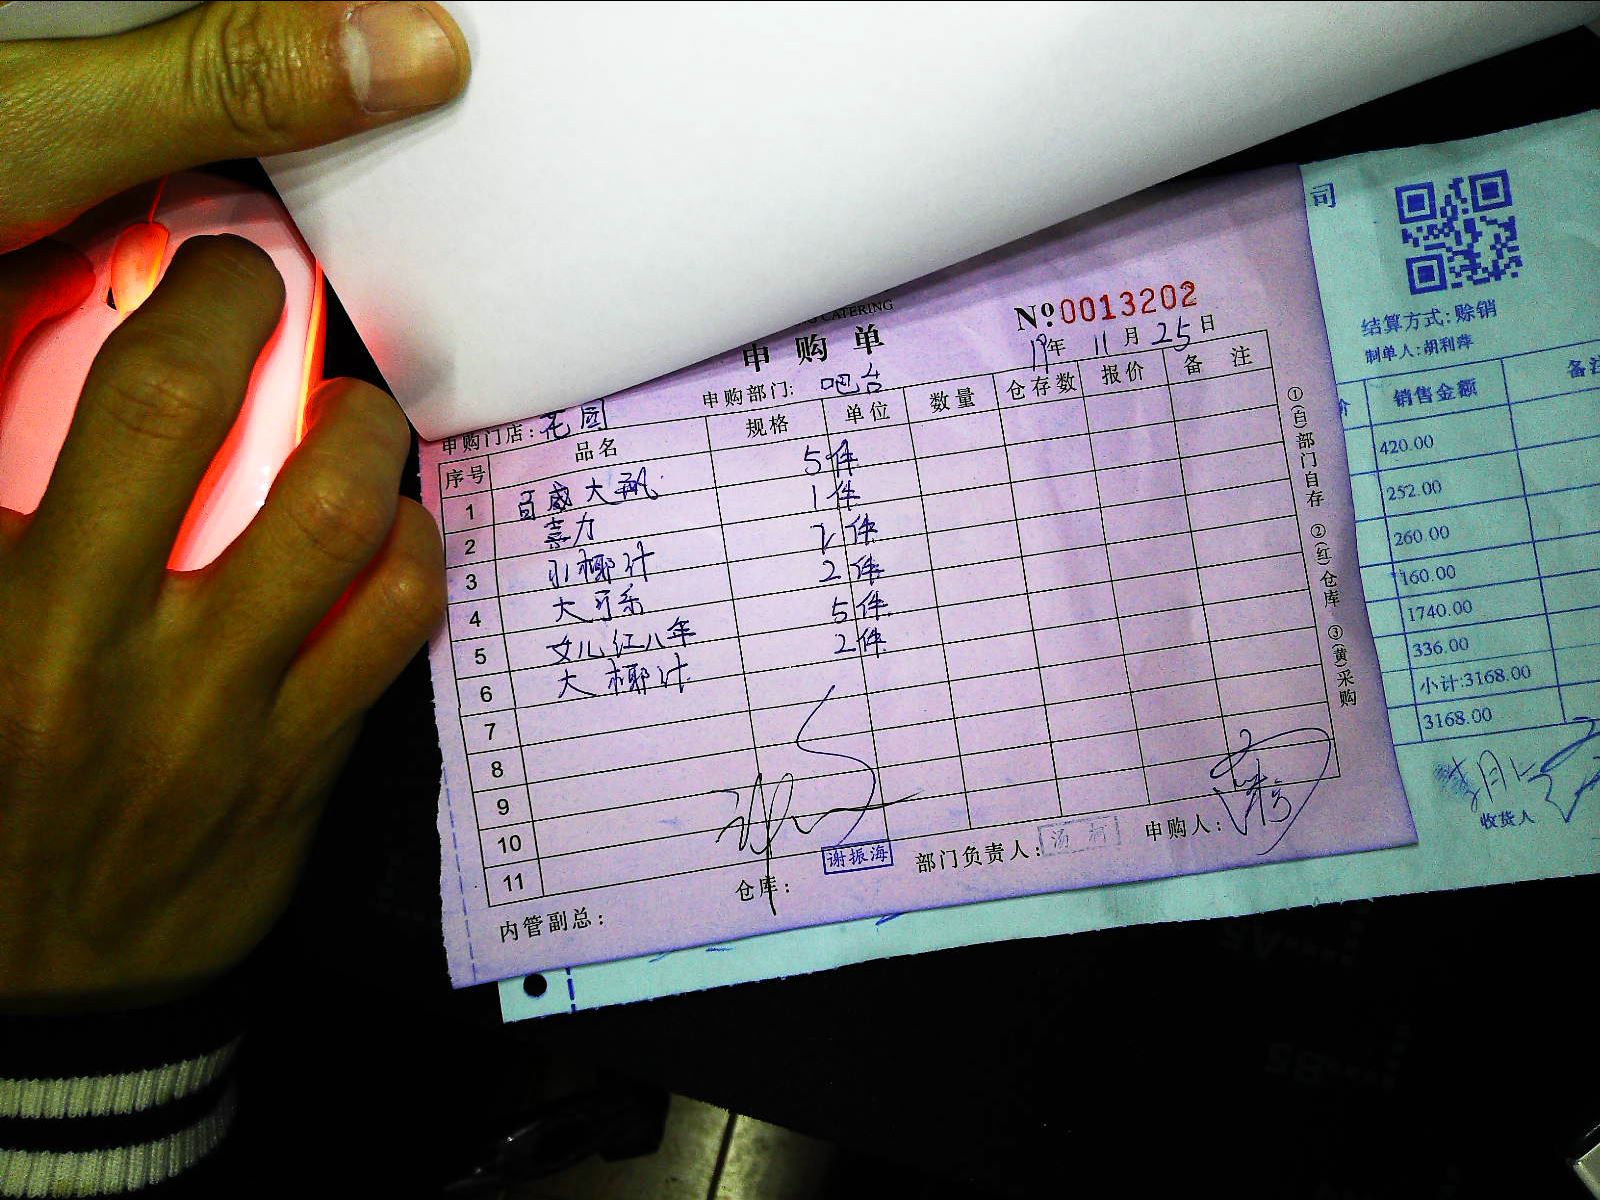 CATERING
申购单
№0013202
19年 11月 25日
申购门店: 花园 申购部门: 吧台
序号 品名 规格 单位 数量 仓存数 报价 备注
1 百威大瓶 5件
2 喜力 1件
3 小椰汁 2件
4 大可乐 2件
5 女儿红八年 5件
6 大椰汁 2件
7
8
9
10
11
内管副总: 仓库: 谢振海 部门负责人: 汤 申购人:
①(白)部门自存 ②(红)仓库 ③(黄)采购
司
结算方式:赊销
制单人:胡利萍
价 销售金额 备注
420.00
252.00
260.00
160.00
1740.00
336.00
小计:3168.00
3168.00
收货人